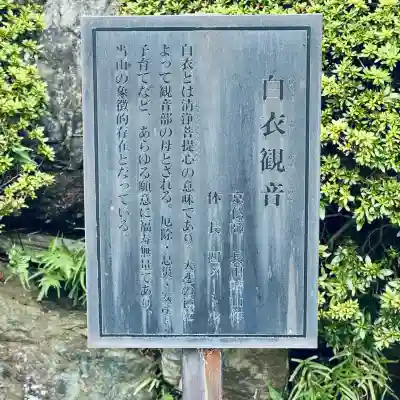 白衣観音
体長 四メートル
白衣とは清浄菩提心の意味であり、大悲の
よって観音部の母とされる。厄除・息災・安産・
子育てなど、あらゆる願意に福寿無量であり、
当山の象徴的存在となっている。